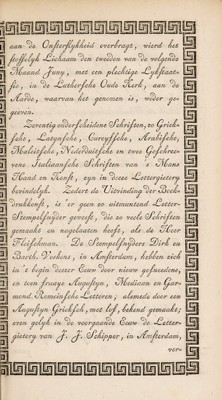 aan de Onsterflykheid overbragt, wierd het
stoffelyk Lichaam den tweeden van de volgende
Maand Juny, met een plechtige Lykstaat-
sie, in de Luthersche Oude Kerk, aan de
Aarde, waarvan het genomen is, weder ge-
geeven.
Zeventig onderscheidene Schriften, zo Griek-
sche, Latynsche, Curzyfsche, Arabische,
Maleitsche, Nederduitsche en twee Geschree-
vene Italiaansche Schriften van 's Mans
Hand en Konst, zyn in deeze Lettergietery
bevindelyk. Zedert de Uitvinding der Boek-
drukkonst, is 'er geen zo uitmuntend Letter-
Stempelsnyder geweest, die zo veele Schriften
gemaakt en nagelaaten heeft, als de Heer
Fleischman. De Stempelsnyders Dirk en
Barth. Voskens, in Amsterdam, hebben zich
in 't begin deezer Eeuw door nieuw gesneedene,
en toen fraaye Augustyn, Mediaan en Gar-
mond Romeinsche Letteren, alsmede door een
Augustyn Grieksch, met lof, bekend gemaakt;
even gelyk in de voorgaande Eeuw de Letter-
gietery van J. J. Schipper, in Amsterdam,
ver-